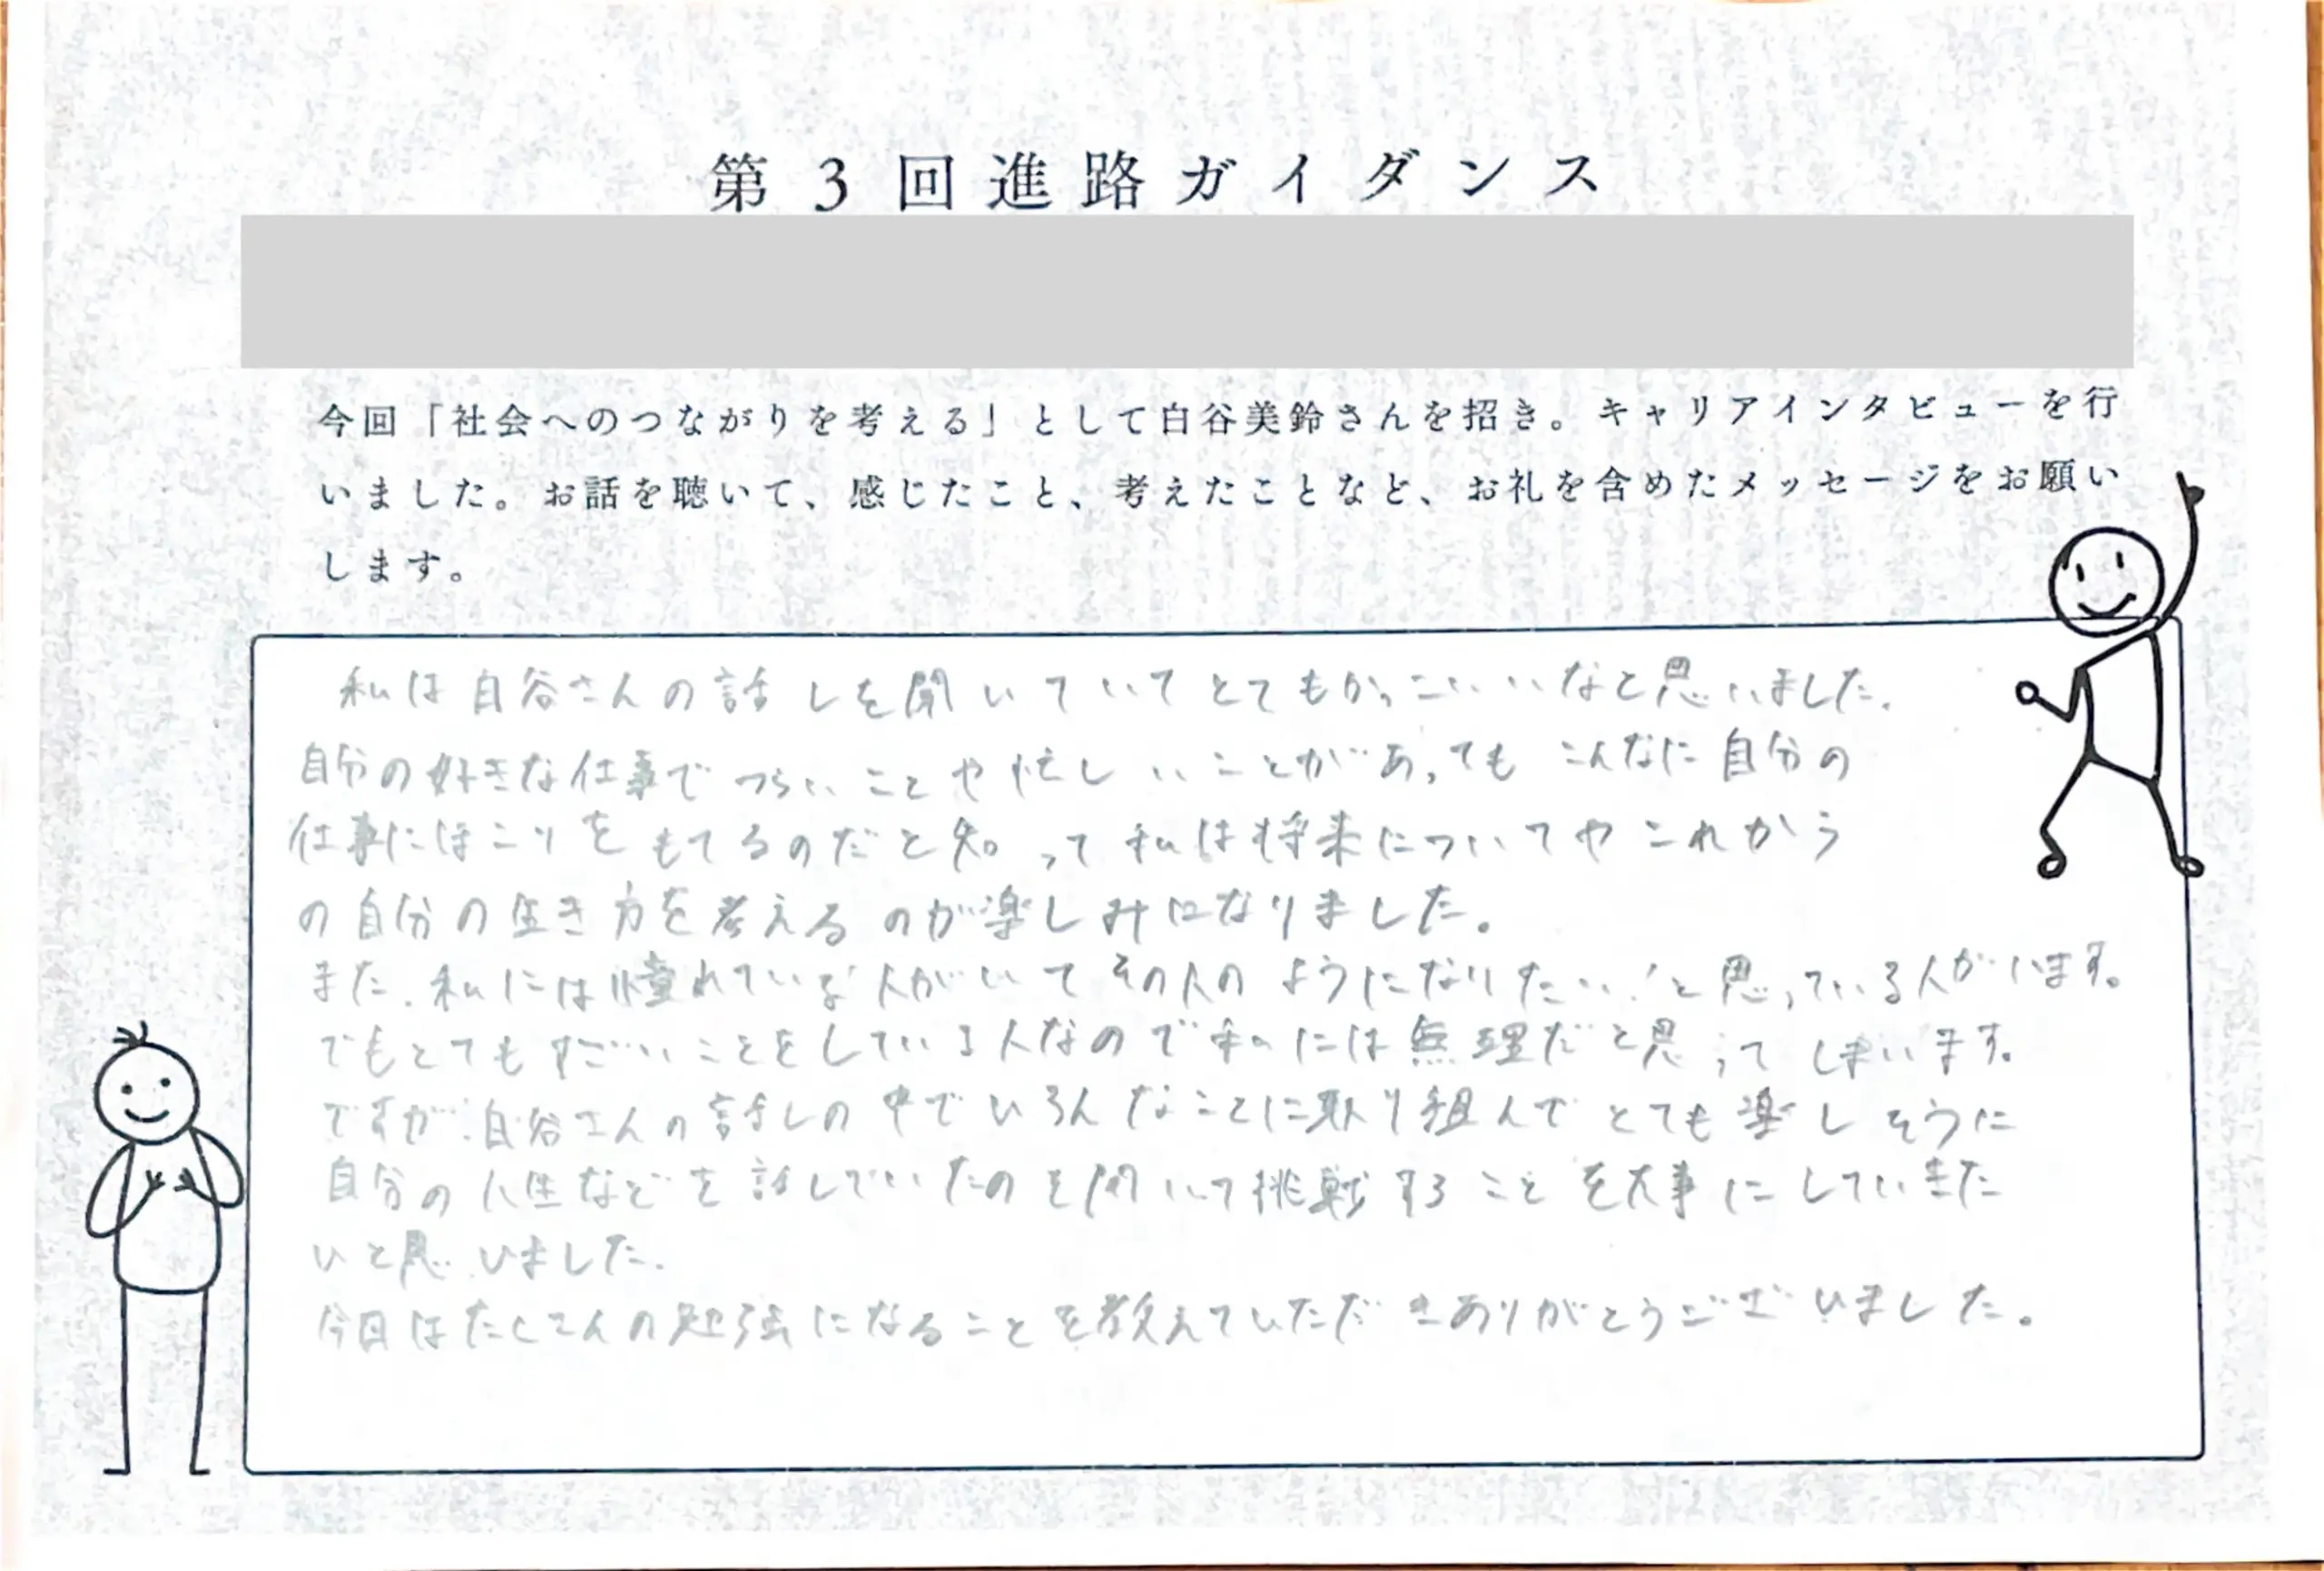 第3回進路ガイダンス
今回「社会へのつながりを考える」として白谷美鈴さんを招き。キャリアインタビューを行
いました。お話を聴いて、感じたこと、考えたことなど、お礼を含めたメッセージをお願い
します。
私は白谷さんの話しを聞いていてとてもかっこいいなと思いました。
自分の好きな仕事でつらいことや忙しいことがあってもこんなに自分の
仕事にほこりをもてるのだと知って私は将来についてやこれから
の自分の生き方を考えるのが楽しみになりました。
また、私には憧れている人がいてその人のようになりたい!と思っている人がいます。
でもとてもすごいことをしている人なので私には無理だと思ってしまいます。
ですが、白谷さんの話しの中でいろんなことに取り組んでとても楽しそうに
自分の人生などを話していたのを聞いて挑戦することを大事にしていきた
いと思いました。
今日はたくさんの勉強になることを教えていただきありがとうございました。